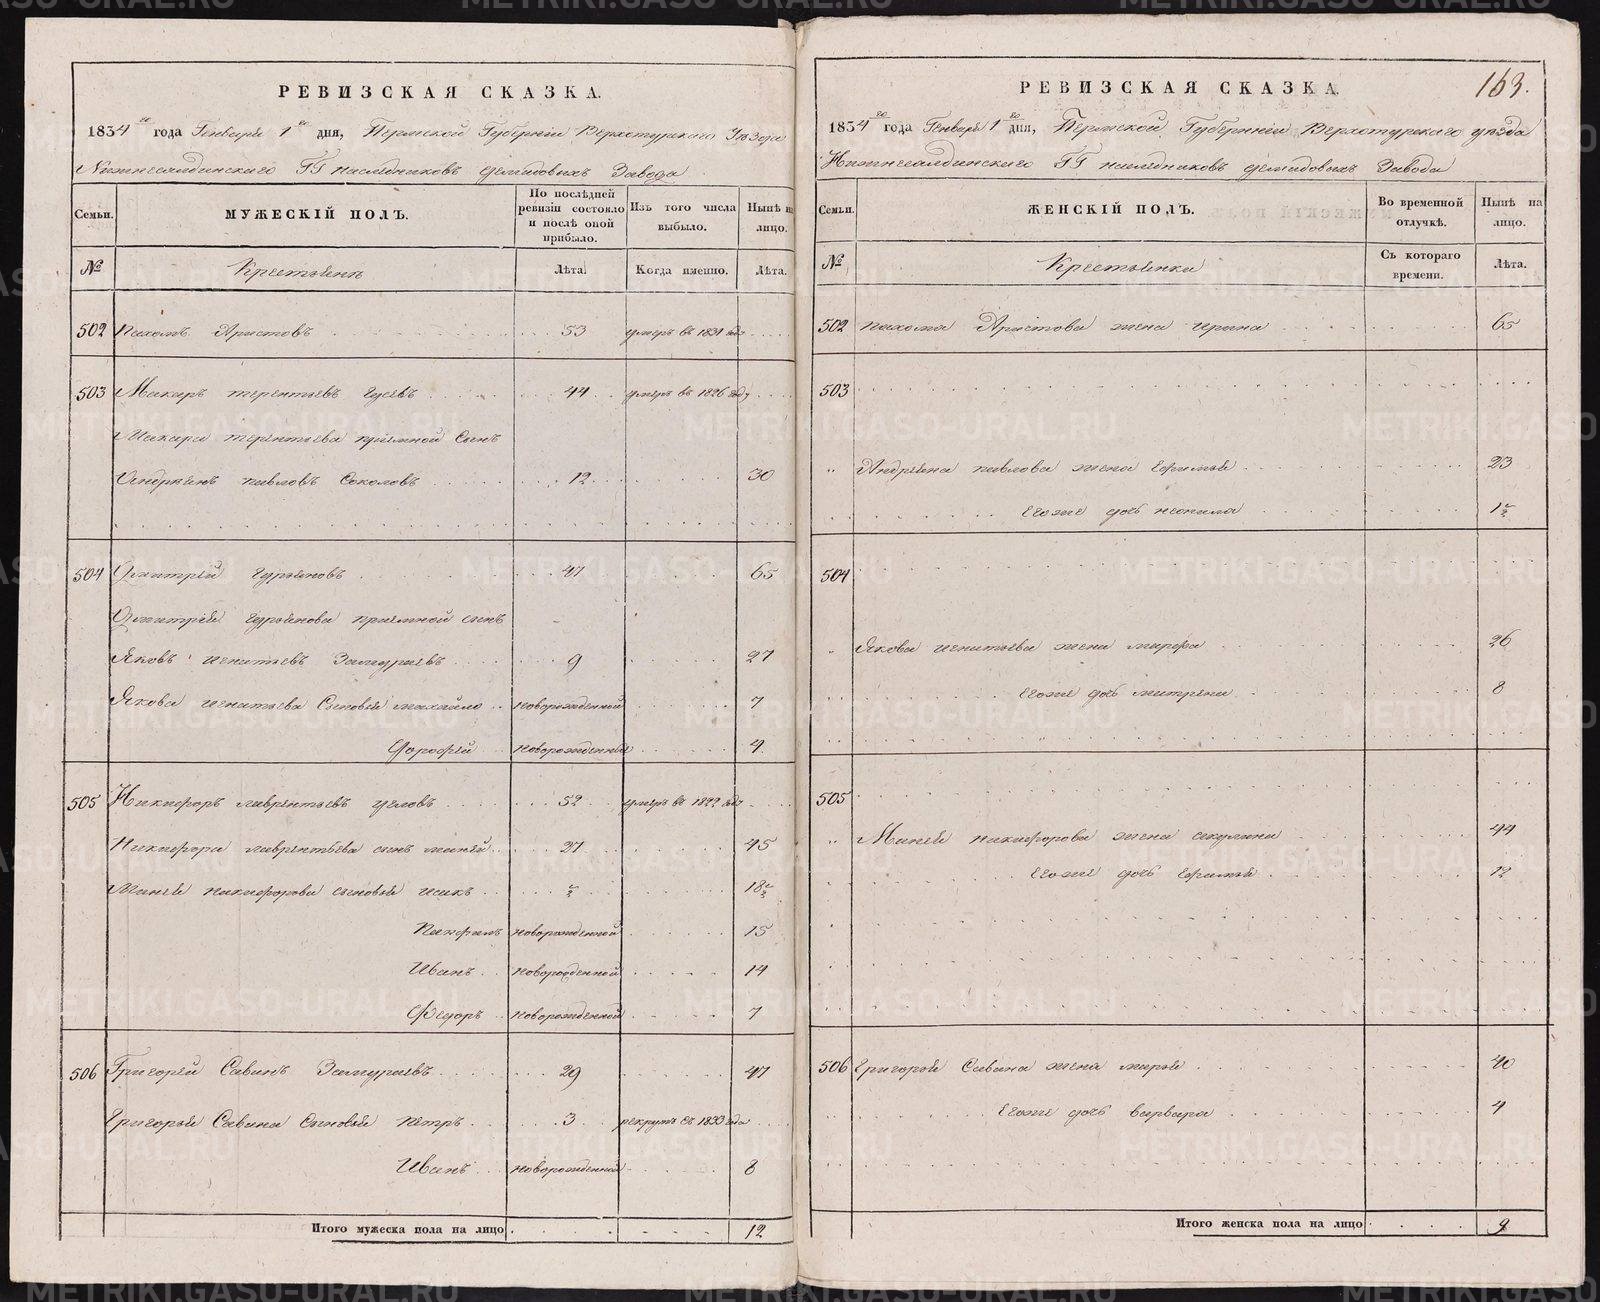 РЕВИЗСКАЯ СКАЗКА.
1834го года Генваря 1го дня, Пермской Губернiи Верхотурскаго Уѣзда
Нижнесалдинскаго ГГ наслѣдниковъ Демидовыхъ Завода
Семьи. МУЖЕСКIЙ ПОЛЪ. По послѣдней ревизiи состояло и послѣ оной прибыло. Изъ того числа выбыло. Нынѣ на лицо.
№ Крестьянъ Лѣта. Когда именно. Лѣта.
502 Пахомъ Аристовъ 53 умеръ въ 1831 году
503 Макаръ терентьевъ Гусевъ 44 умеръ въ 1826 году
Макара терентьева прiемной Сынъ
Андреянъ павловъ Соколовъ 12 30
504 Дмитрей Гурьяновъ 47 65
Дмитрея Гурьянова прiемной сынъ
Яковъ игнатьевъ Замураевъ 9 27
Якова игнатьева Сыновья михайло новорожденной 7
Дорофей новорожденный 4
505 Никифоръ лаврентьевъ 52 умеръ въ 1822 году
Никифора лаврентьева сынъ маней 27 45
Манея никифорова сыновья исакъ ½ 18½
Панфилъ новорожденной 15
Иванъ новорожденной 14
Федоръ новорожденной 7
506 Григорей Савинъ Замураевъ 29 47
Григорья Савина Сыновья петръ 3 рекрутъ въ 1833 года
Иванъ новорожденной 8
Итого мужеска пола на лицо 12
163.
РЕВИЗСКАЯ СКАЗКА.
1834го года Генваря 1го дня, Пермской Губернiи Верхотурскаго уѣзда
Нижнесалдинскаго ГГ наслѣдниковъ демидовыхъ Завода
Семьи. ЖЕНСКIЙ ПОЛЪ. Во временной отлучкѣ. Нынѣ на лицо.
№ Крестьянки Съ котораго времени. Лѣта.
502 пахома Аристова жена ирина 65
503
" Андреяна павлова жена Ефимья 23
Егоже дочь неонила 1½
504
" Якова игнатьева жена марфа 26
Егоже дочь митрена 8
505
" Манея никифорова жена акулина 44
Егоже дочь Ефимья 12
506 Григорья Савина жена марья 40
Егоже дочь варвара 4
Итого женска пола на лицо 9
METRIKI.GASO-URAL.RU